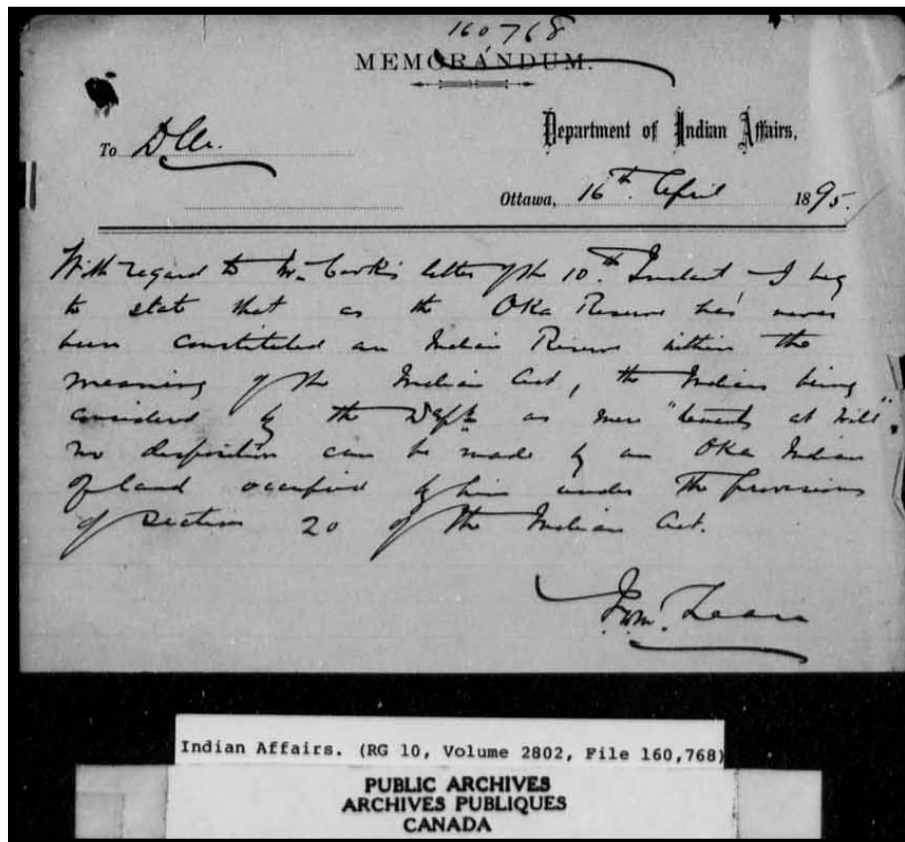 160768
MEMORANDUM.
To
Department of Indian Affairs,
Ottawa, 16th April 1895.
With regard to Mr. letter of the 10th Instant I beg
to state that as the Oka Reserve has never
been constituted an Indian Reserve within the
meaning of the Indian Act, the Indians being
considered by the Dept as mere "tenants at will",
no disposition can be made by an Oka Indian
of land occupied by him under the provisions
of section 20 of the Indian Act.
Indian Affairs. (RG 10, Volume 2802, File 160,768)
PUBLIC ARCHIVES
ARCHIVES PUBLIQUES
CANADA